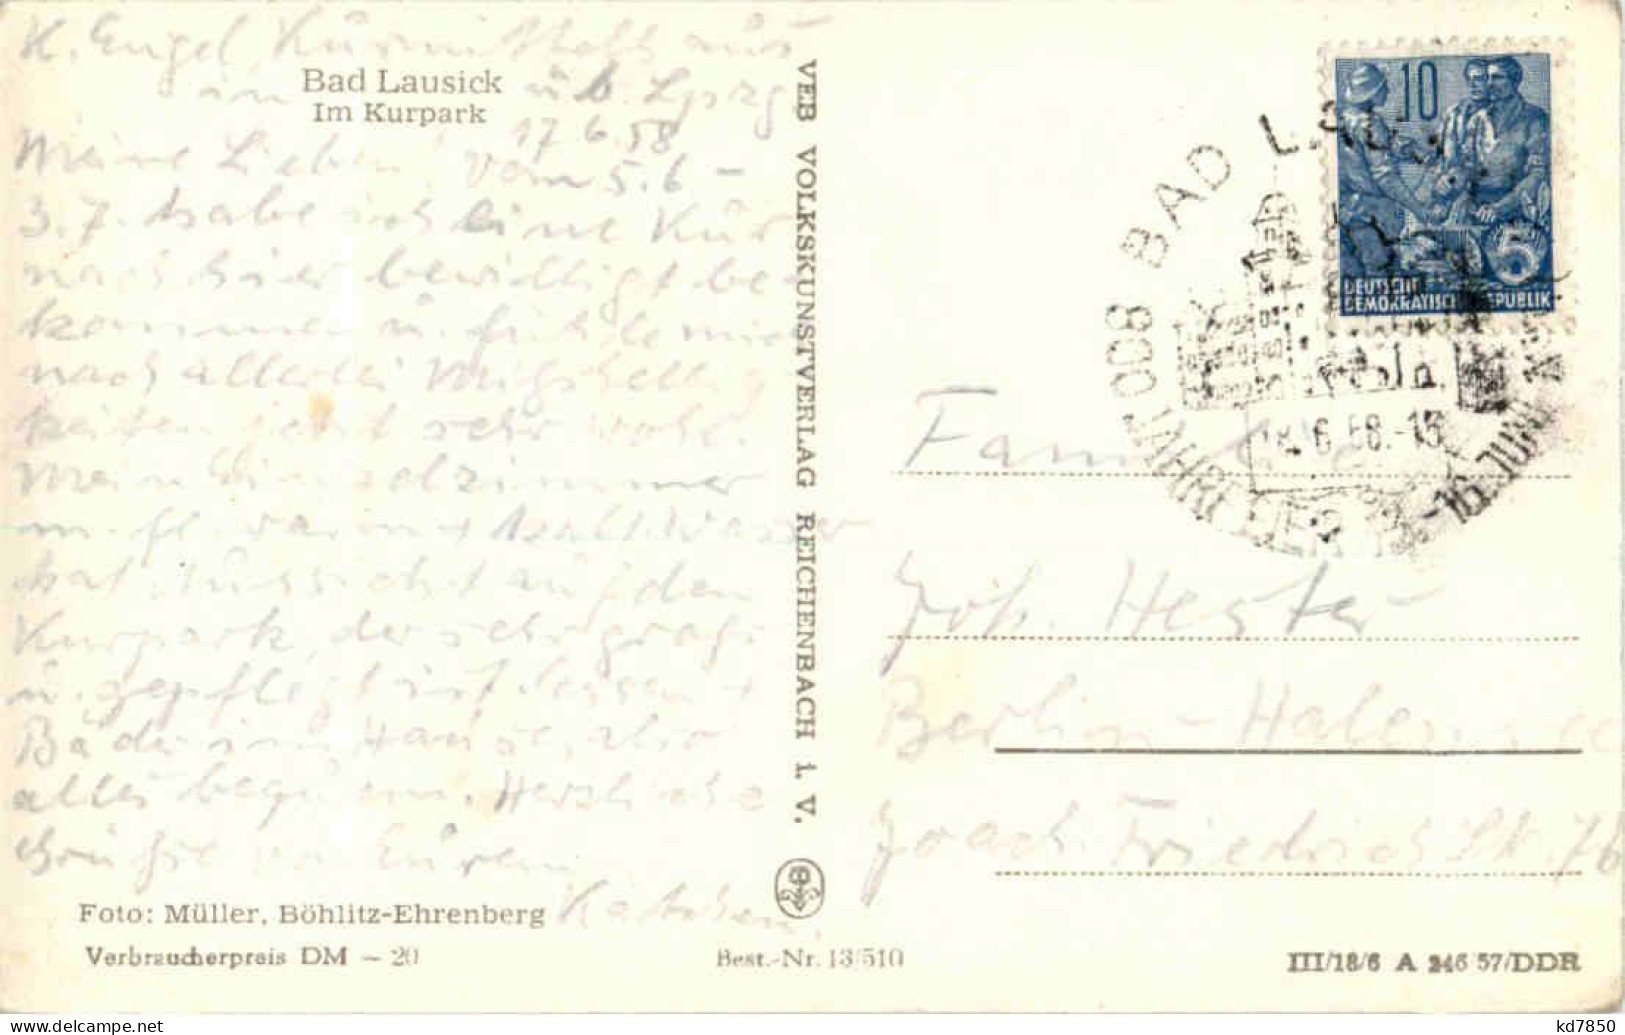 K. Engel, Kurmittelhaus
Bad Lausick
in üb. Lpzg
Im Kurpark
17.6.58
Meine Lieben! Vom 5.6 –
3.7. habe ich eine Kur
nach hier bewilligt be-
kommen u. fühle mich
nach allerlei Mißhellig
keiten jetzt sehr wohl.
Mein Einzelzimmer
m. fl. warm + kalt. Wasser
hat Aussicht auf den
Kurpark, der sehr groß
u. gepflegt ist. Essen +
Bäder im Hause, also
alles bequem. Herzliche
Grüße von Eurem
Käthchen.
Foto: Müller, Böhlitz-Ehrenberg
Verbraucherpreis DM – 20
Best.-Nr. 13/510
III/18/6 A 246 57/DDR
VEB VOLKSKUNSTVERLAG REICHENBACH i. V.
10
5
DEUTSCHE
DEMOKRATISCHE REPUBLIK
BAD LAUSICK
800 JAHRFEIER -16. JUNI
18.6.58.-15
Familie
Joh. Hester
Berlin-Halensee
Joach. Friedrich Str. 76
kd7850